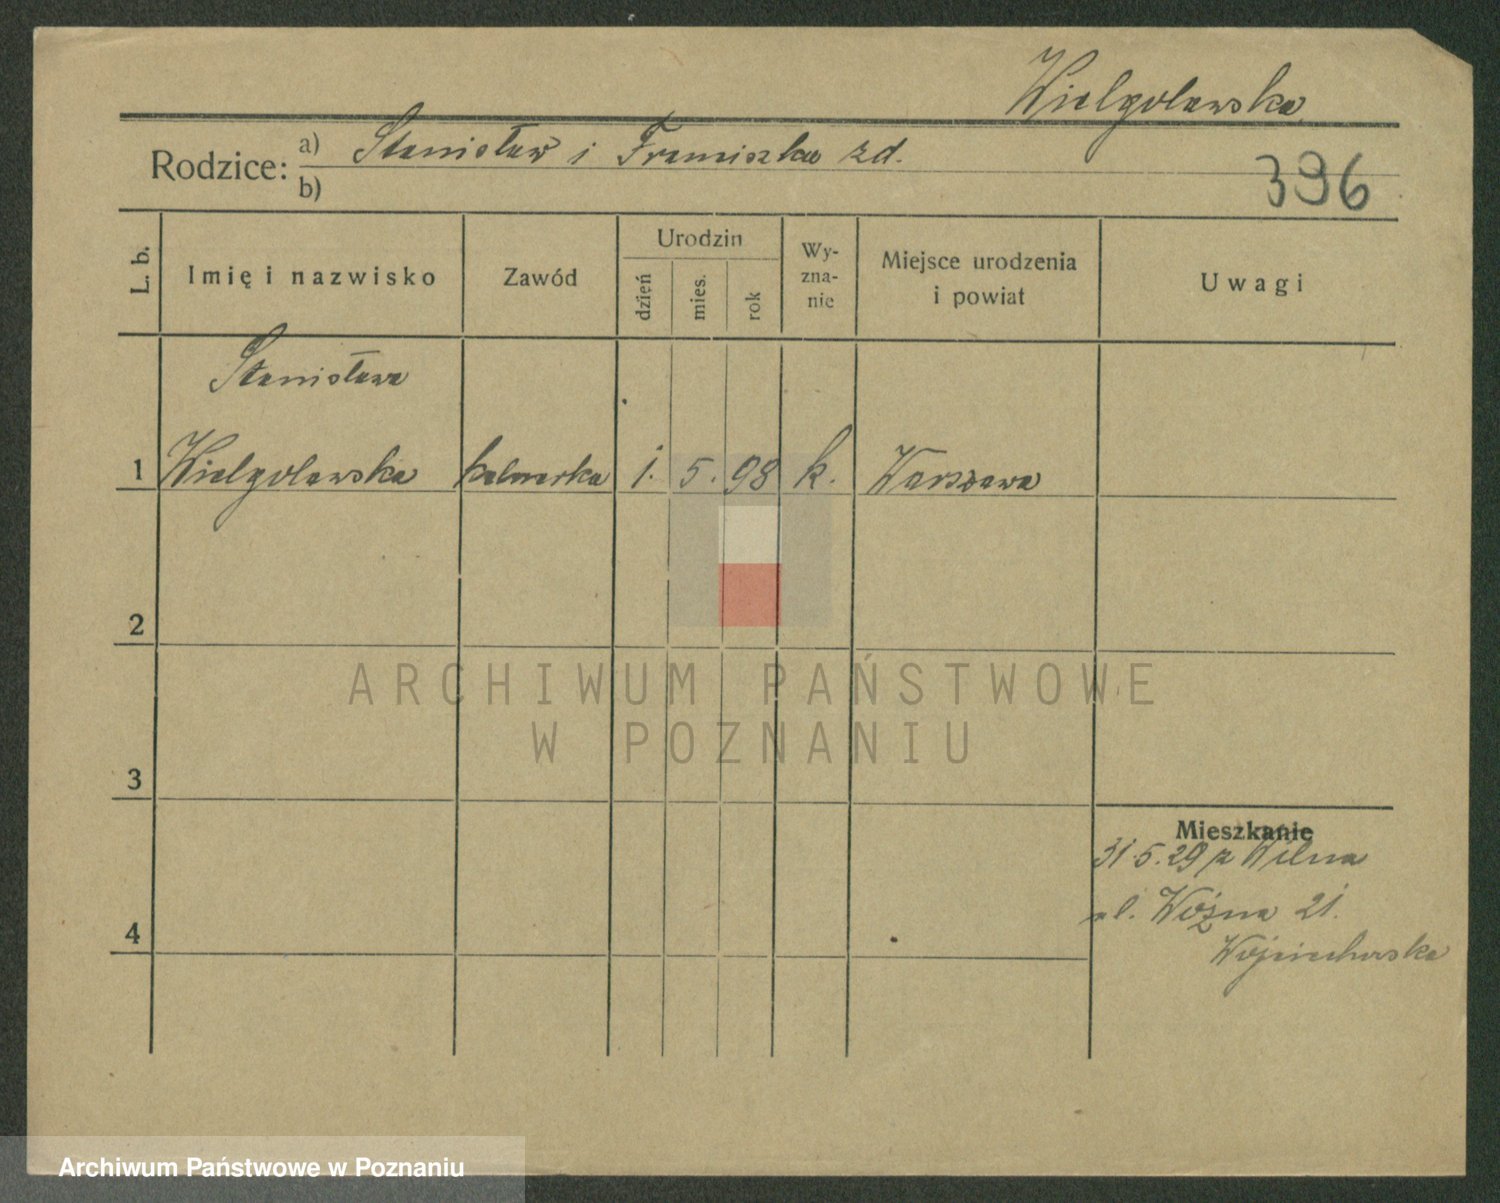 Wielgolawska
Rodzice: a) Stanisław i Franciszka zd.
b)
396
L. b.
Imię i nazwisko
Zawód
Urodzin
dzień
mies.
rok
Wy-
zna-
nie
Miejsce urodzenia
i powiat
Uwagi
Stanisława
1 Wielgolawska kelnerka 1. 5. 98 k. Warszawa
2
3
4
Mieszkanie
31.5.29 z Wilna
ul. Woźna 21.
Wojciechowska
ARCHIWUM PAŃSTWOWE
W POZNANIU
Archiwum Państwowe w Poznaniu